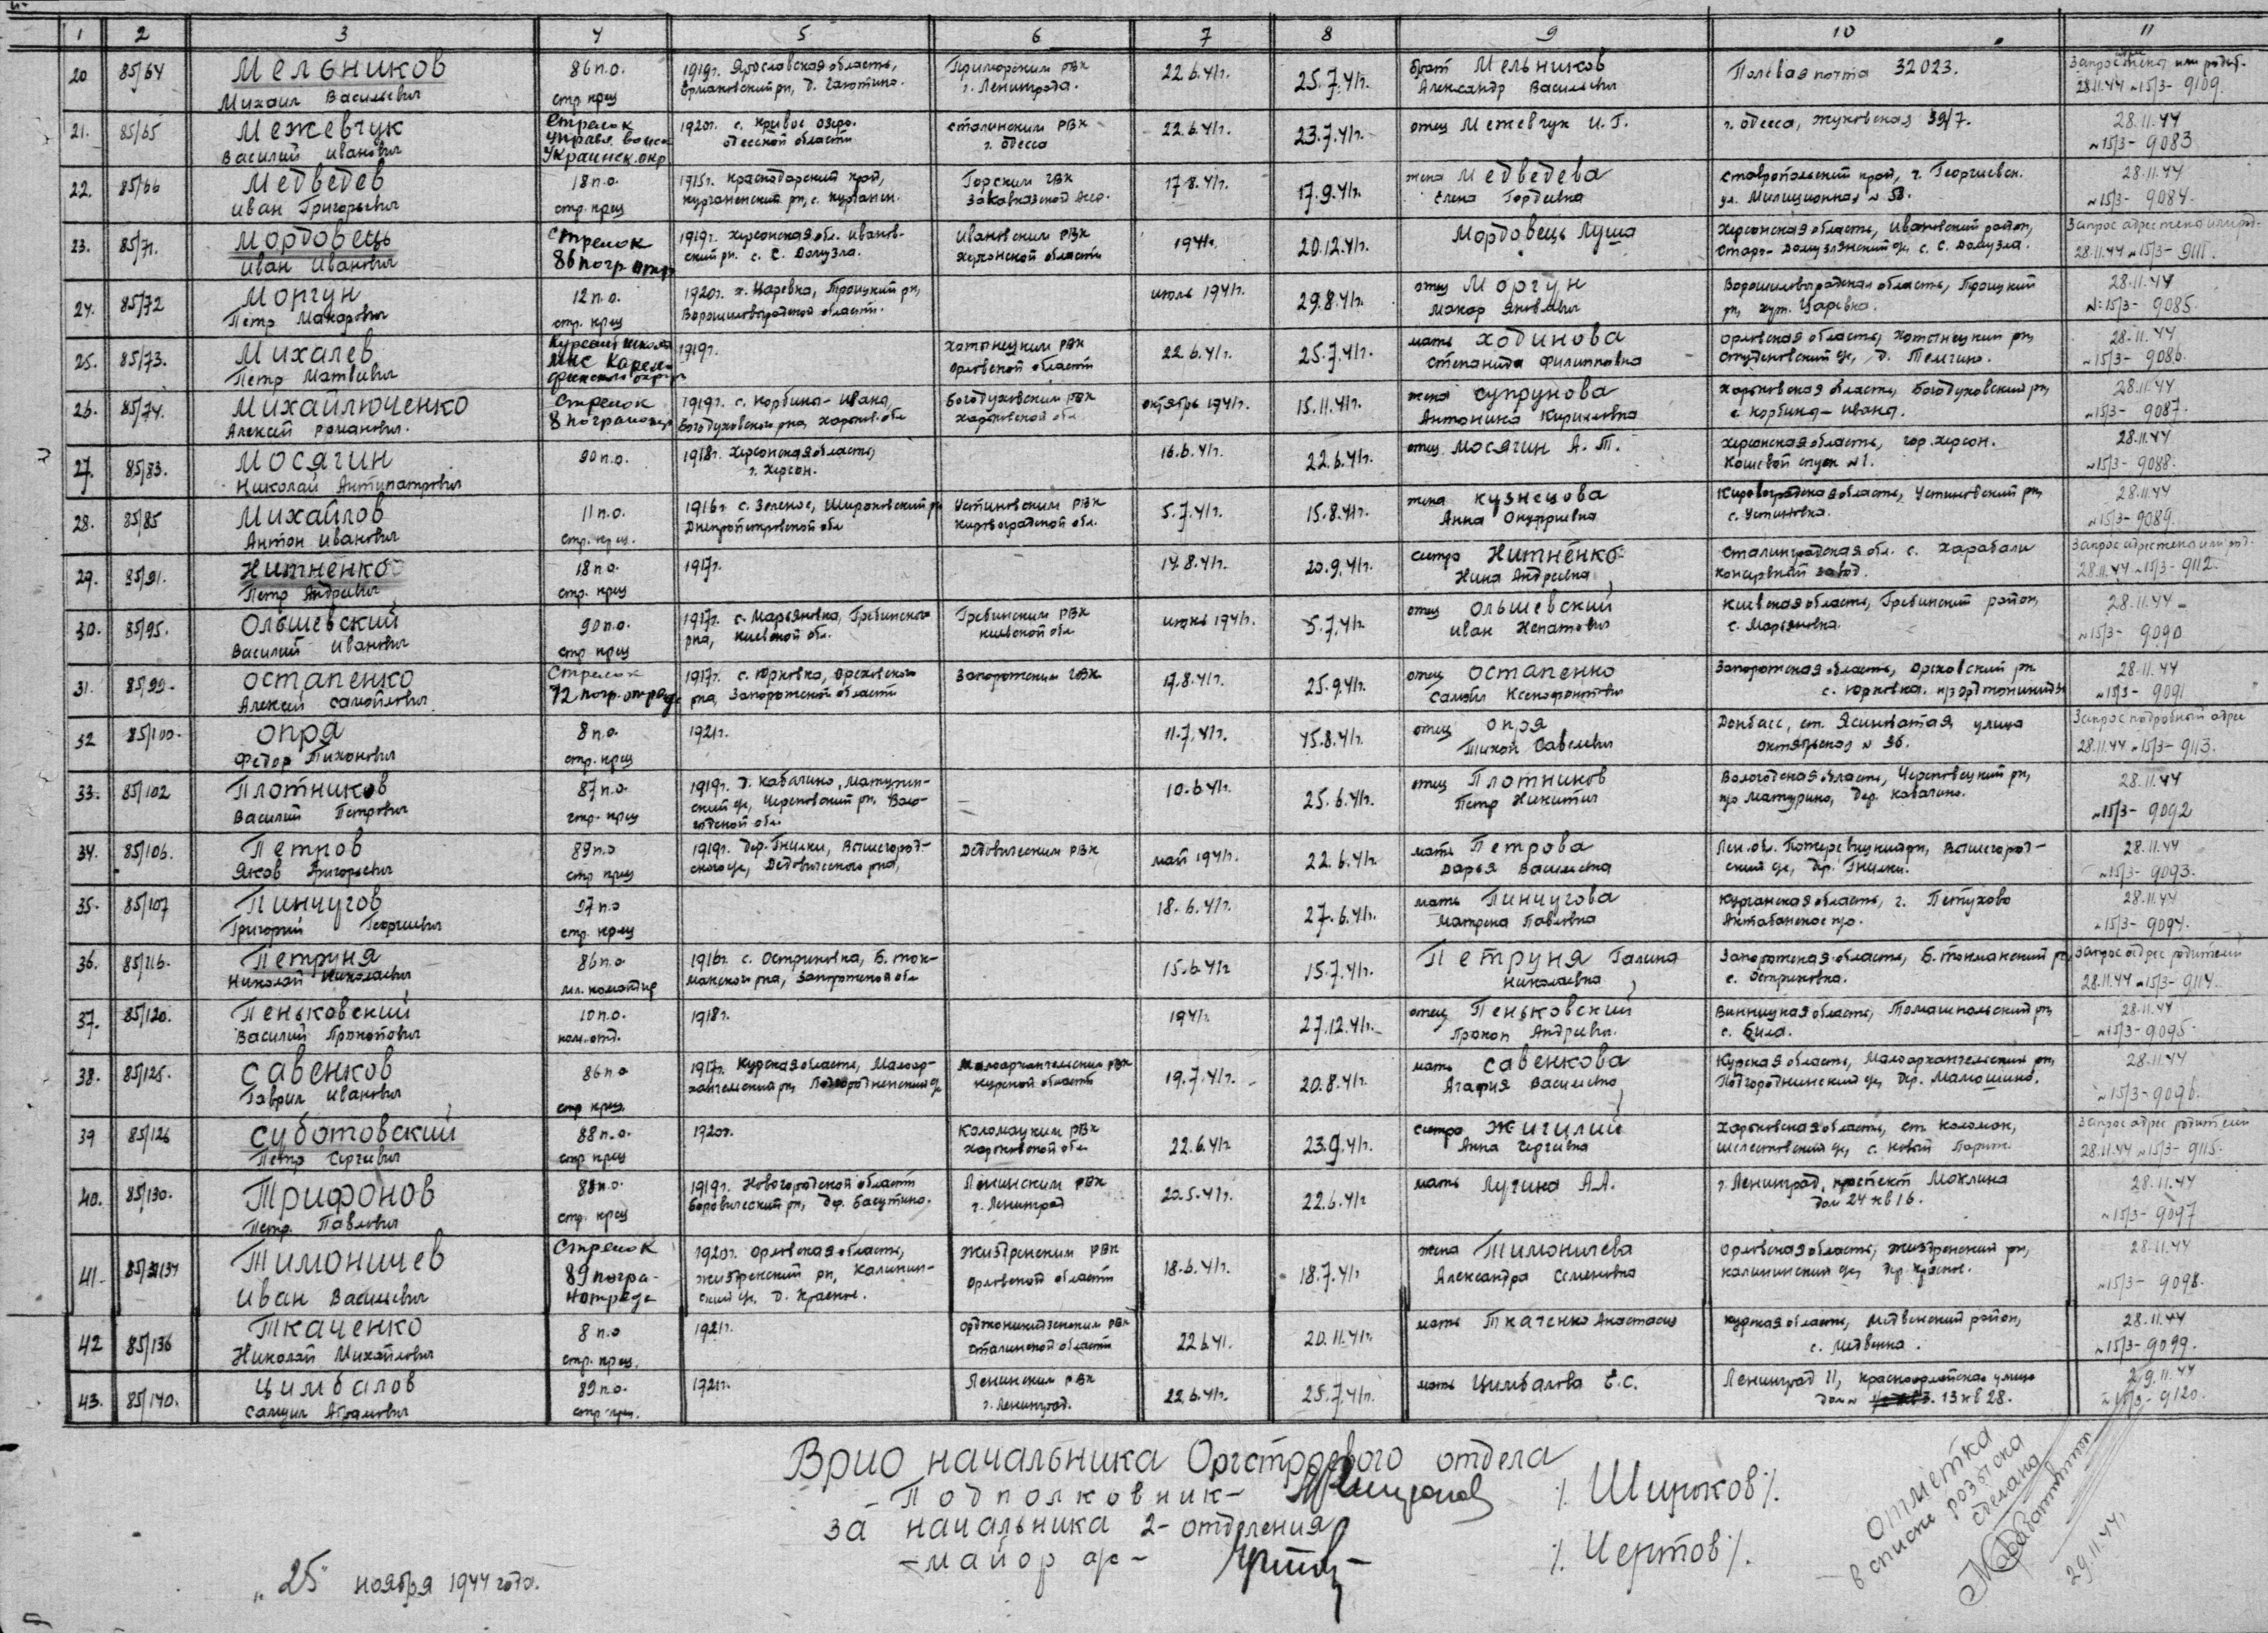 1 2 3 4 5 6 7 8 9 10 11
20 85/64 Мельников 86 п.о. 1919г. Ярославская область, Приморским РВК 22.6.41г. 25.7.41г. брат Мельников Полевая почта 32023.
Михаил Васильевич стр. крец Ермаковский рн, д. Гаютино. г. Ленинграда. Александр Васильевич 28.11.44 №15/3- 9109
21. 85/65 Межевчук Стрелок 1920г. с. Кривое озеро. Сталинским РВК 22.6.41г. 23.7.41г. отец Межевчук И.Г. г. Одесса, Жуковская 39/7. 28.11.44
Василий Иванович управл. войск Украинск. окр Одесской области г. Одесса №15/3- 9083
22. 85/66 Медведев 18 п.о. 1915г. Краснодарский край, Горским ГВК 17.8.41г. 17.9.41г. жена Медведева Ставропольский край, г. Георгиевск. 28.11.44
Иван Григорьевич стр. крец Курганенский рн, с. Курганен. Елена Гордеевна ул. Милиционная № 58. №15/3- 9084.
23. 85/71. Мордовець Стрелок 1919г. Херсонская обл. Иванов- Ивановским РВК 1941г. 20.12.41г. Мордовець Луша Херсонская область, Ивановский район,
Иван Иванович 86 погр отр ский рн. с. С. Домузла. Херсонской области Старо-Домузлянский с/с, с. С. Домузла. 28.11.44 №15/3- 9111.
24. 85/72 Моргун 12 п.о. 1920г. х. Царевка, Троицкий рн, июль 1941г. 29.8.41г. отец Моргун Ворошиловградская область, Троицкий 28.11.44
Петр Макарович стр. крец Ворошиловградской области. Макар Яковлевич рн, хут. Царевка. №15/3- 9085.
25. 85/73. Михалев Курсант школы 1919г. Хотынецким РВК 22.6.41г. 25.7.41г. мать Ходинова Орловская область, Хотынецкий рн, 28.11.44
Петр Матвеевич МНС Карело финского округа Орловской области Степанида Филипповна Студеновский с/с, д. Телегино. №15/3- 9086.
26. 85/74. Михайлюченко Стрелок 1919г. с. Корбина-Ивана, Богодуховским РВК октябрь 1941г. 15.11.41г. жена Супрунова Харьковская область, Богодуховский рн, 28.11.44
Алексей Романович. 8 погранотр Богодуховского рна, Харьков. обл Харьковской обл Антонина Кирилловна с. Корбина-Ивана. №15/3- 9087.
27. 85/83. Мосягин 90 п.о. 1918г. Херсонская область, 16.6.41г. 22.6.41г. отец Мосягин А.Т. Херсонская область, гор. Херсон. 28.11.44
Николай Антипатрович г. Херсон. Кошевой спуск №1. №15/3- 9088.
28. 85/85 Михайлов 11 п.о. 1916г с. Зеленое, Широковский рн Устиновским РВК 5.7.41г. 15.8.41г. жена Кузнецова Кировоградская область, Устиновский рн, 28.11.44
Антон Иванович стр. крец. Днепропетровской обл Кировоградской обл. Анна Онуфриевна с. Устиновка. №15/3- 9089.
29. 85/91. Нитненко 18 п.о. 1917г. 14.8.41г. 20.9.41г. сестра Нитненко Сталинградская обл. с. Харабали
Петр Андреевич стр. крец Нина Андреевна Консервный завод. 28.11.44 №15/3- 9112.
30. 85/95. Ольшевский 90 п.о. 1917г. с. Марьяновка, Гребинского Гребинским РВК июнь 1941г. 5.7.41г. отец Ольшевский Киевская область, Гребинский район, 28.11.44
Василий Иванович стр крец рна, Киевской обл. Киевской обл Иван Игнатович с. Марьяновка. №15/3- 9090
31. 85/99. Остапенко Стрелок 1917г. с. Юрковка, Ореховского Запорожским ГВК 17.8.41г. 25.9.41г. отец Остапенко Запорожская область, Ореховский рн 28.11.44
Алексей Самойлович 72 погр. отряда рна, Запорожской области Самойл Ксенофонтович с. Юрковка. к/з Орджоникидзе №15/3- 9091
32 85/100. Опря 8 п.о. 1921г. 11.7.41г. 15.8.41г. отец Опря Донбасс, ст. Ясиноватая улица Запрос подробный адрес
Федор Тихонович стр. крец Тихон Савельевич Октябрьская № 36. 28.11.44 №15/3- 9113.
33. 85/102 Плотников 87 п.о. 1919г. д. Кабачино, Матурин- 10.6.41г. 25.6.41г. отец Плотников Вологодская область, Череповецкий рн, 28.11.44
Василий Петрович стр. крец ский с/с, Череповский рн, Воло- годской обл. Петр Никитич п/о Матурино, дер. Кабачино. №15/3- 9092
34. 85/106. Петров 89 п.о 1919г. дер. Гнилки, Вышегород- Дедовическим РВК май 1941г. 22.6.41г. мать Петрова Лен. обл. Пожеревицкий рн, Вышегород- 28.11.44
Яков Григорьевич стр крец ского с/с, Дедовического рна, Дарья Васильевна ский с/с, дер. Гнилки. №15/3- 9093.
35. 85/107 Пинчугов 97 п.о 18.6.41г. 27.6.41г. мать Пинчугова Курганская область, г. Петухово 28.11.44
Григорий Георгиевич стр. крец Матрена Павловна Актабанское п/о. №15/3- 9094.
36. 85/116. Петруня 86 п.о. 1916г. с. Остриковка, Б. Ток- 15.6.41г 15.7.41г. Петруня Галина Запорожская область, Б. Токманский рн, Запрос адрес родителей
Николай Николаевич мл. командир макского рна, Запорожской обл Николаевна с. Остриковка. 28.11.44 №15/3- 9114.
37. 85/120. Пеньковский 10 п.о. 1918г. 1941г. 27.12.41г. отец Пеньковский Винницкая область, Томашпольский рн, 28.11.44
Василий Прокопович ком. отд. Прокоп Андреевич. с. Била. №15/3- 9095.
38. 85/125. Савенков 86 п.о 1917г. Курская область, Малоар- Малоархангельским РВК 19.7.41г. 20.8.41г. мать Савенкова Курская область, Малоархангельский рн, 28.11.44
Гаврил Иванович стр крец. хангельский рн, Подгородненский с/с Курской области Агафия Васильевна Подгороднинский с/с, дер. Мамошино. №15/3- 9096.
39 85/126 Суботовский 88 п.о. 1920г. Коломацким РВК 22.6.41г. 23.9.41г. сестра Жигилий Харьковская область, ст. Коломак, Запрос адрес родителей
Петр Сергеевич стр крец Харьковской обл. Анна Сергеевна Шелестовский с/с, с. Новый Париж. 28.11.44 №15/3- 9115.
40. 85/130. Трифонов 88 п.о. 1919г. Новогородской области Ленинским РВК 20.5.41г. 22.6.41г мать Лугина А.А. г. Ленинград, проспект Маклина 28.11.44
Петр Павлович стр. крец Боровический рн, дер. Басутино. г. Ленинград дом 24 кв 16. №15/3- 9097
41. Тимоничев Стрелок 1920г. Орловская область, Жиздренским РВК 18.6.41г. 18.7.41г жена Тимоничева Орловская область, Жиздренский рн, 28.11.44
Иван Васильевич 89 погра- нотряда Жиздренский рн, Калинин- ский с/с, д. Красное. Орловской области Александра Семеновна Калининский с/с, дер. Красное. №15/3- 9098.
42 85/136 Ткаченко 8 п.о 1921г. Орджоникидзевским РВК 22.6.41. 20.11.41г. мать Ткаченко Анастасия Курская область, Медвенский район, 28.11.44
Николай Михайлович стр. крец. Сталинской области с. Медвенка. №15/3- 9099.
43. 85/140. Цимбалов 89 п.о. 1921г. Ленинским РВК 22.6.41г. 25.7.41г. мать Цимбалова Е.С. Ленинград 11, Красноармейская улица 29.11.44
Самуил Абрамович стр крец. г. Ленинград. дом № 13 кв 28. №15/3- 9120.
Врио начальника Оргстроевого отдела
- Подполковник - /. Широков/.
за начальника 2- отделения
- майор а/с - /. Чертов/.
"25" ноября 1944 года.
Отметка
в списке розыска
сделана
29.11.44.